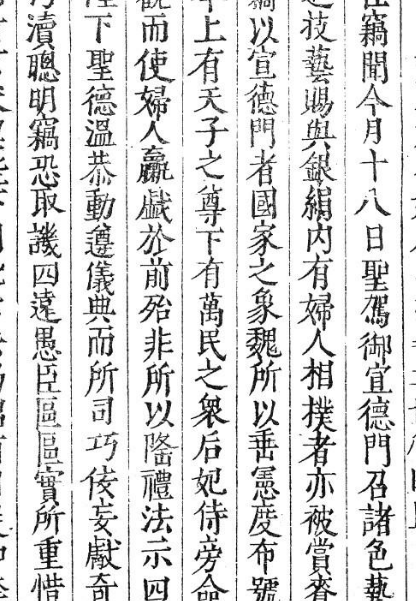 竊聞今月十八日聖駕御宣德門召諸色藝
技藝賜與銀絹内有婦人相撲者亦被賞賚
竊以宣德門者國家之象魏所以垂憲度布號
上有天子之尊下有萬民之衆后妃侍旁命
觀而使婦人臝戲於前殆非所以隆禮法示四
下聖德溫恭動遵儀典而所司巧佞妄獻奇
瀆聰明竊恐取譏四遠愚臣區區實所重惜